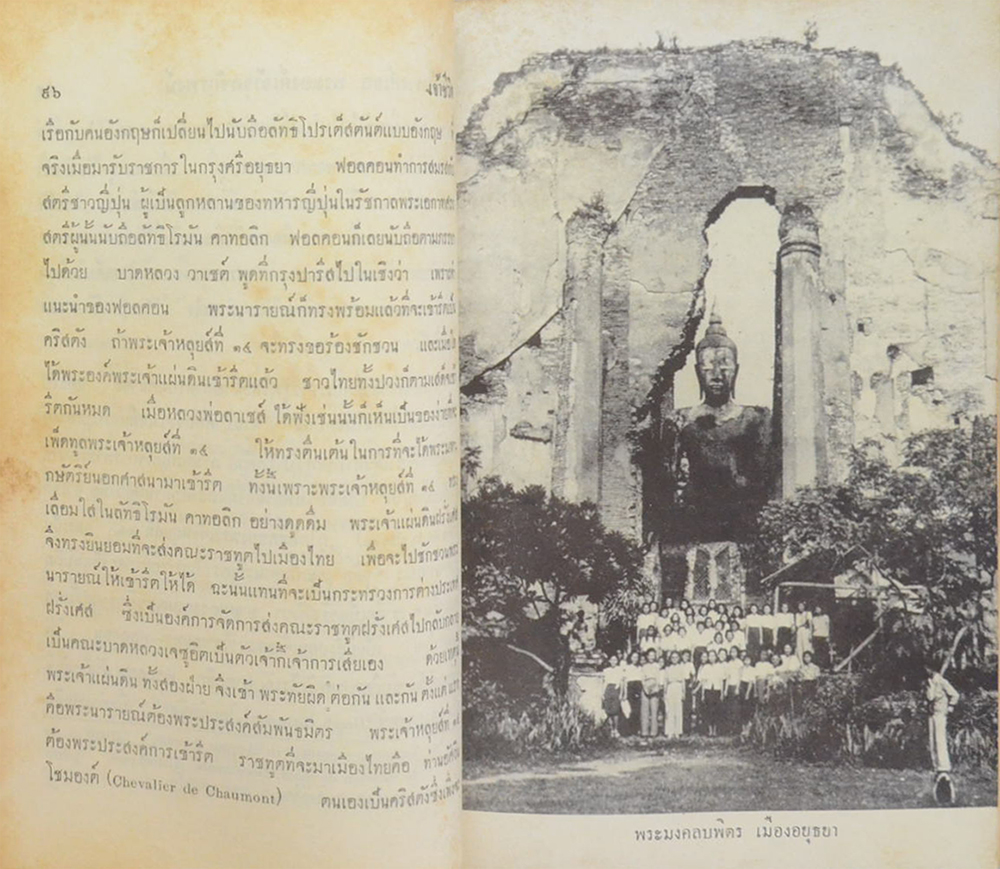 ๙๖
เรือกับคนอังกฤษก็เปลี่ยนไปนับถือลัทธิโปรเต็สตันต์แบบอังกฤษ
จริงเมื่อมารับราชการในกรุงศรีอยุธยา ฟอลคอนทำการสมรส
สตรีชาวญี่ปุ่น ผู้เป็นลูกหลานของทหารญี่ปุ่นในรัชกาลพระเอกาทศ
สตรีผู้นั้นนับถือลัทธิโรมัน คาทอลิก ฟอลคอนก็เลยนับถือตามภรรยา
ไปด้วย บาดหลวง วาเชต์ พูดที่กรุงปารีสไปในเชิงว่า เพราะ
แนะนำของฟอลคอน พระนารายณ์ก็ทรงพร้อมแล้วที่จะเข้ารีต
คริสตัง ถ้าพระเจ้าหลุยส์ที่ ๑๔ จะทรงขอร้องชักชวน และเมื่อ
ได้พระองค์พระเจ้าแผ่นดินเข้ารีตแล้ว ชาวไทยทั้งปวงก็ตามเสด็จ
รีตกันหมด เมื่อหลวงพ่อลาเชส์ ได้ฟังเช่นนั้นก็เห็นเป็นของง่าย
เพ็ดทูลพระเจ้าหลุยส์ที่ ๑๔ ให้ทรงตื่นเต้นในการที่จะได้พระมหา
กษัตริย์นอกศาสนามาเข้ารีต ทั้งนี้เพราะพระเจ้าหลุยส์ที่ ๑๔ ทรง
เลื่อมใสในลัทธิโรมัน คาทอลิก อย่างดูดดื่ม พระเจ้าแผ่นดินฝรั่งเศส
จึงทรงยินยอมที่จะส่งคณะราชทูตไปเมืองไทย เพื่อจะไปชักชวนพระ
นารายณ์ให้เข้ารีตให้ได้ ฉะนั้นแทนที่จะเป็นกระทรวงการต่างประเทศ
ฝรั่งเศส ซึ่งเป็นองค์การจัดการส่งคณะราชทูตฝรั่งเศสไปกลับกลาย
เป็นคณะบาดหลวงเจซูอิตเป็นตัวเจ้ากี้เจ้าการเสียเอง ด้วยเหตุ
พระเจ้าแผ่นดิน ทั้งสองฝ่าย จึงเข้า พระทัยผิด ต่อกัน และกัน ตั้งแต่
คือพระนารายณ์ต้องพระประสงค์สัมพันธมิตร พระเจ้าหลุยส์ที่ ๑๔
ต้องพระประสงค์การเข้ารีต ราชทูตที่จะมาเมืองไทยคือ ท่าน
โชมองต์ (Chevalier de Chaumont) ตนเองเป็นคริสตังซึ่ง
พระมงคลบพิตร เมืองอยุธยา